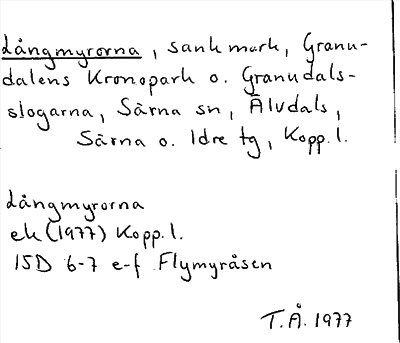 Långmyrorna, sank mark, Granu-
dalens Kronopark o. Granudals-
skogarna, Särna sn, Älvdals,
Särna o. Idre tg, Kopp. l.
Långmyrorna
ek (1977) Kopp. l.
15D 6-7 e-f Flymyråsen
T.Å. 1977